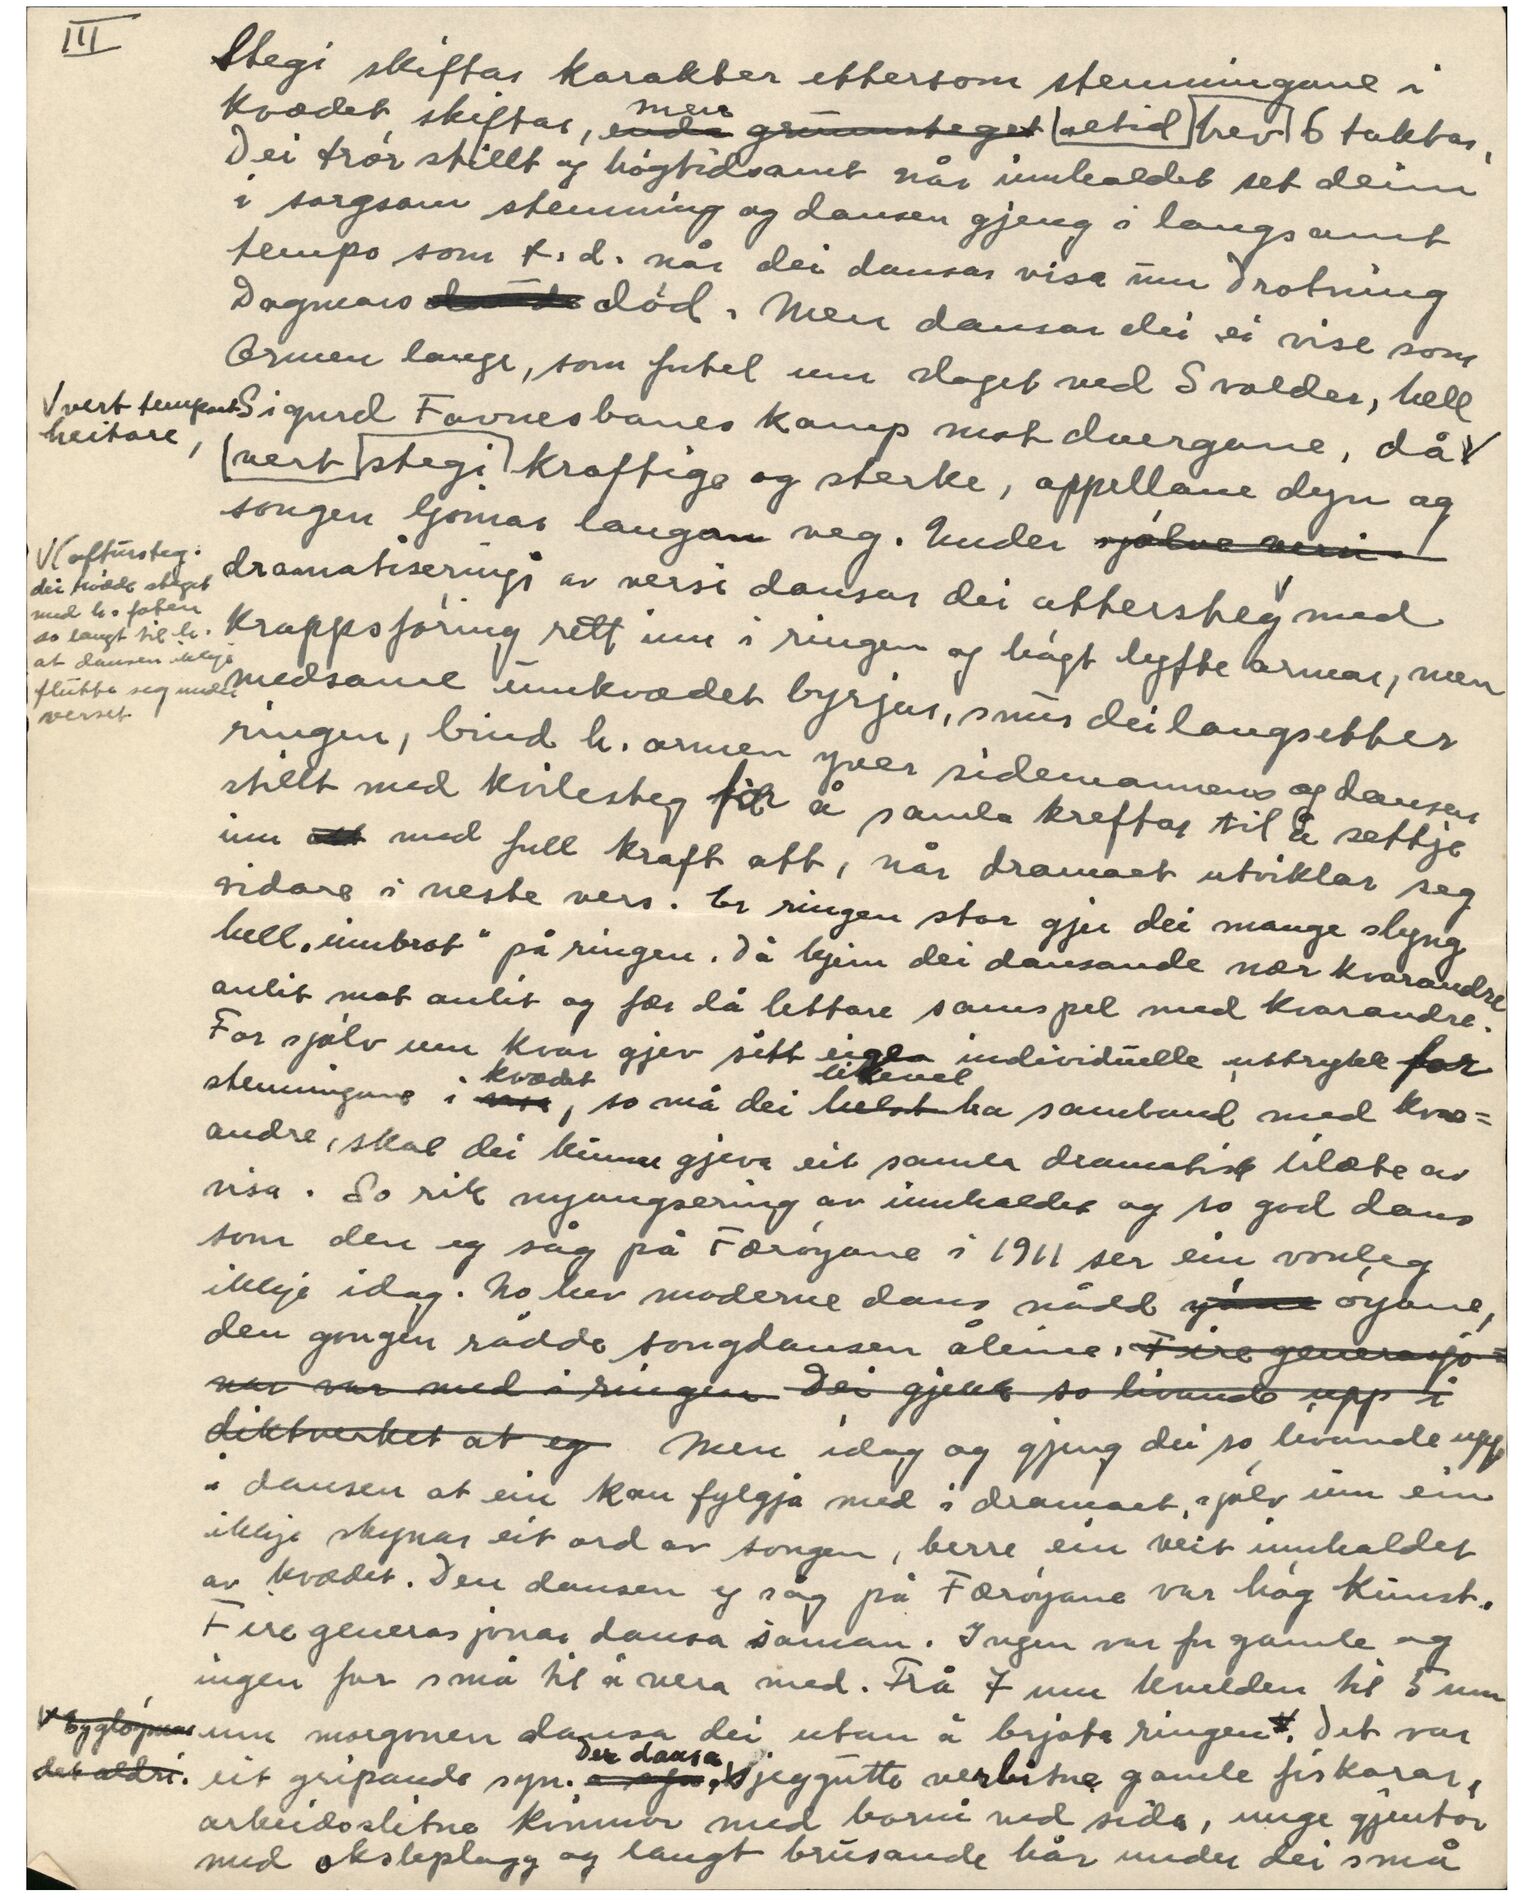 III
Stegi skiftar karakter ettersom stemningane i
kvædet skiftar, enda grunnsteget men [altid] [hev] 6 taktar,
Dei trør stillt og høgtidsamt når innhaldet set deim
i sorgsam stemning og dansen gjeng i langsamt
tempo som t.d. når dei dansar visa um Drotning
Dagmars død. Men dansar dei ei vise som
Ormen lange, som fortel um slaget ved Svolder, hell
Sigurd Favnesbanes kamp mot dvergane, då √
√ vert tempoet
heitare,
[vert] [stegi] kraftige og sterke, appellane dyn og
songen ljomar langan veg. Under sjølve versi
dramatiseringi av versi dansar dei attersteg √ med
√ (aftursteg.
dei træde steget
med h. foten
so langt til h.
at dansen ikkje
flutte seg under
verset
kroppsføring rett inn i ringen og høgt lyfte armar, men
medsame umkvædet byrjar, snur dei langsetter
ringen, bind h. armen yver sidemannens og dansar
stillt med kvilesteg for å samla kreftar til å settje
inn att med full kraft att, når dramaet utviklar seg
vidare i neste vers. Er ringen stor gjer dei mange slyng
hell "innbrot" på ringen. Då kjem dei dansande nær kvarandre
anlit mot anlit og fær då lettare samspel med kvarandre.
For sjølv um kvar gjev sitt eigla individuelle uttrykk for
stemningane i visa kvædet, so må dei helst likevel ha samband med kvar=
andre, skal dei kunna gjeva eit samla dramatisk tilæte av
visa. So rik nyangsering av innhaldet og so god dans
som den eg såg på Færøyane i 1911 ser ein vonleg
ikkje idag. No hev moderne dans nådd øyane,
den gongen rådde songdansen åleine. Fire generasjo=
nar var med i ringen Dei gjekk so livande upp i
diktverket at eg Men idag og gjeng dei so livande upp
i dansen at ein kan fylgja med i dramaet, sjølv um ein
ikkje skynar eit ord av songen, berre ein veit innhaldet
av kvædet. Den dansen eg såg på Færøyane var høg kunst.
Fire generasjonar dansa saman. Ingen var for gamle og
ingen for små til å vera med. Frå 7 um kvelden til 5 um
um morgonen dansa dei utan å brjota ringen √. Det var
det aldri.
eit gripande syn. Der dansa skjeggutte verbitne gamle fiskarar,
arbeidslitne kvinnor med borni ved sida, unge gjentor
med oksleplagg og langt brusande hår under dei små